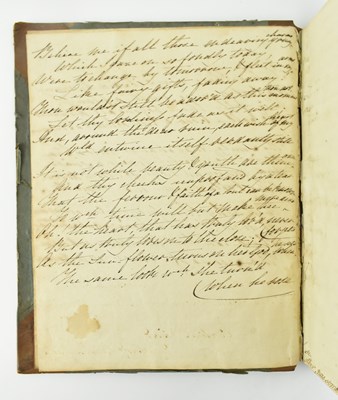 Believe me if all those endearing young charms
Which I gaze on so fondly today
Were to change by tomorrow, & fleet in my arms
Like fairy gifts, fading away
Thou wouldst still be ador'd as this moment thou art
Let thy loveliness fade as it will
And, around the dear ruin, each wish of my heart
Wld entwine itself verdantly still
It is not while beauty & youth are thine own
And thy cheeks unprofan'd by a tear
That the fervour & faith of a soul can be known
To wh time will but make thee more dear
Oh! the heart that has truly lov'd never forgets
But as truly loves on to the close
As the Sun flower turns on her God, when he sets
The same look wh she turn'd
when he rose